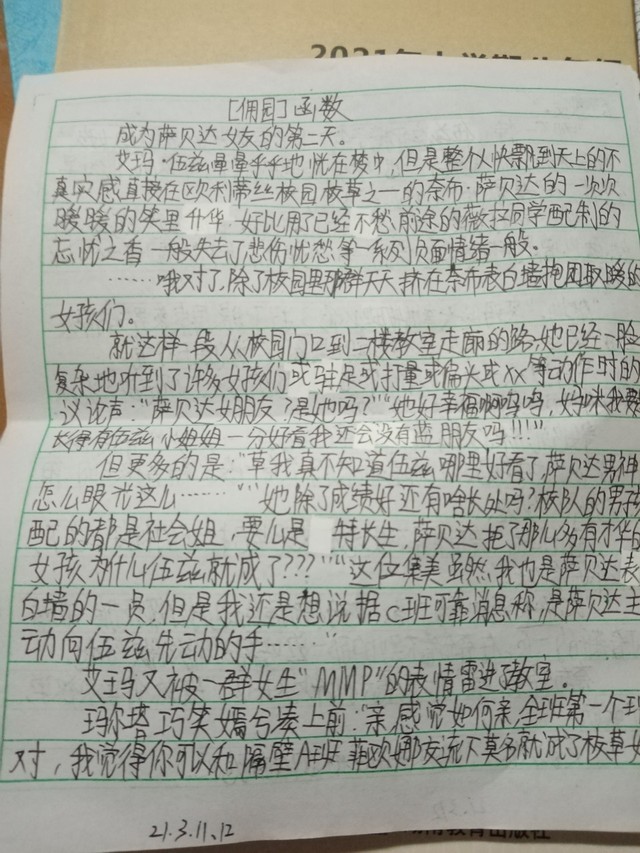 [佣园]函数
成为萨贝达女友的第二天。
艾玛·伍兹晕晕乎乎地恍在梦中，但是整个人快飘到天上的不
真实感直接在欧利蒂丝校园校草之一的奈布·萨贝达的一次次
暖暖的笑里升华 好比用了已经不愁前途的薇拉同学配制的
忘忧之香一般失去了悲伤忧愁等一系列负面情绪一般。
……哦对了，除了校园里那群天天挤在奈布表白墙抱团取暖的
女孩们。
就这样一段从校园门口到二楼教室走廊的路，她已经一脸
复杂地听到了许多女孩们或驻足或打量或偏头或XX等动作时的
议论声："萨贝达女朋友？是她吗？""她好幸福啊呜呜，妈咪我要
长得有伍兹小姐姐一分好看我还会没有蓝朋友吗!!!"
但更多的是："草我真不知道伍兹哪里好看了，萨贝达男神
怎么眼光这么……""她除了成绩好还有啥长处吗？校队的男孩
配的都是社会姐，要么是 特长生，萨贝达拒了那么多有才华的
女孩为什么伍兹就成了???""这位集美虽然我也是萨贝达表
白墙的一员，但是我还是想说据C班可靠消息称，是萨贝达主
动向伍兹先动的手……"
艾玛又被一群女生"MMP"的表情雷进了教室。
玛尔塔巧笑嫣兮凑上前："亲感觉如何亲，全班第一个
对，我觉得你可以和隔壁A班菲欧娜交流下莫名就成了校草女
21.3.11、12
2021年